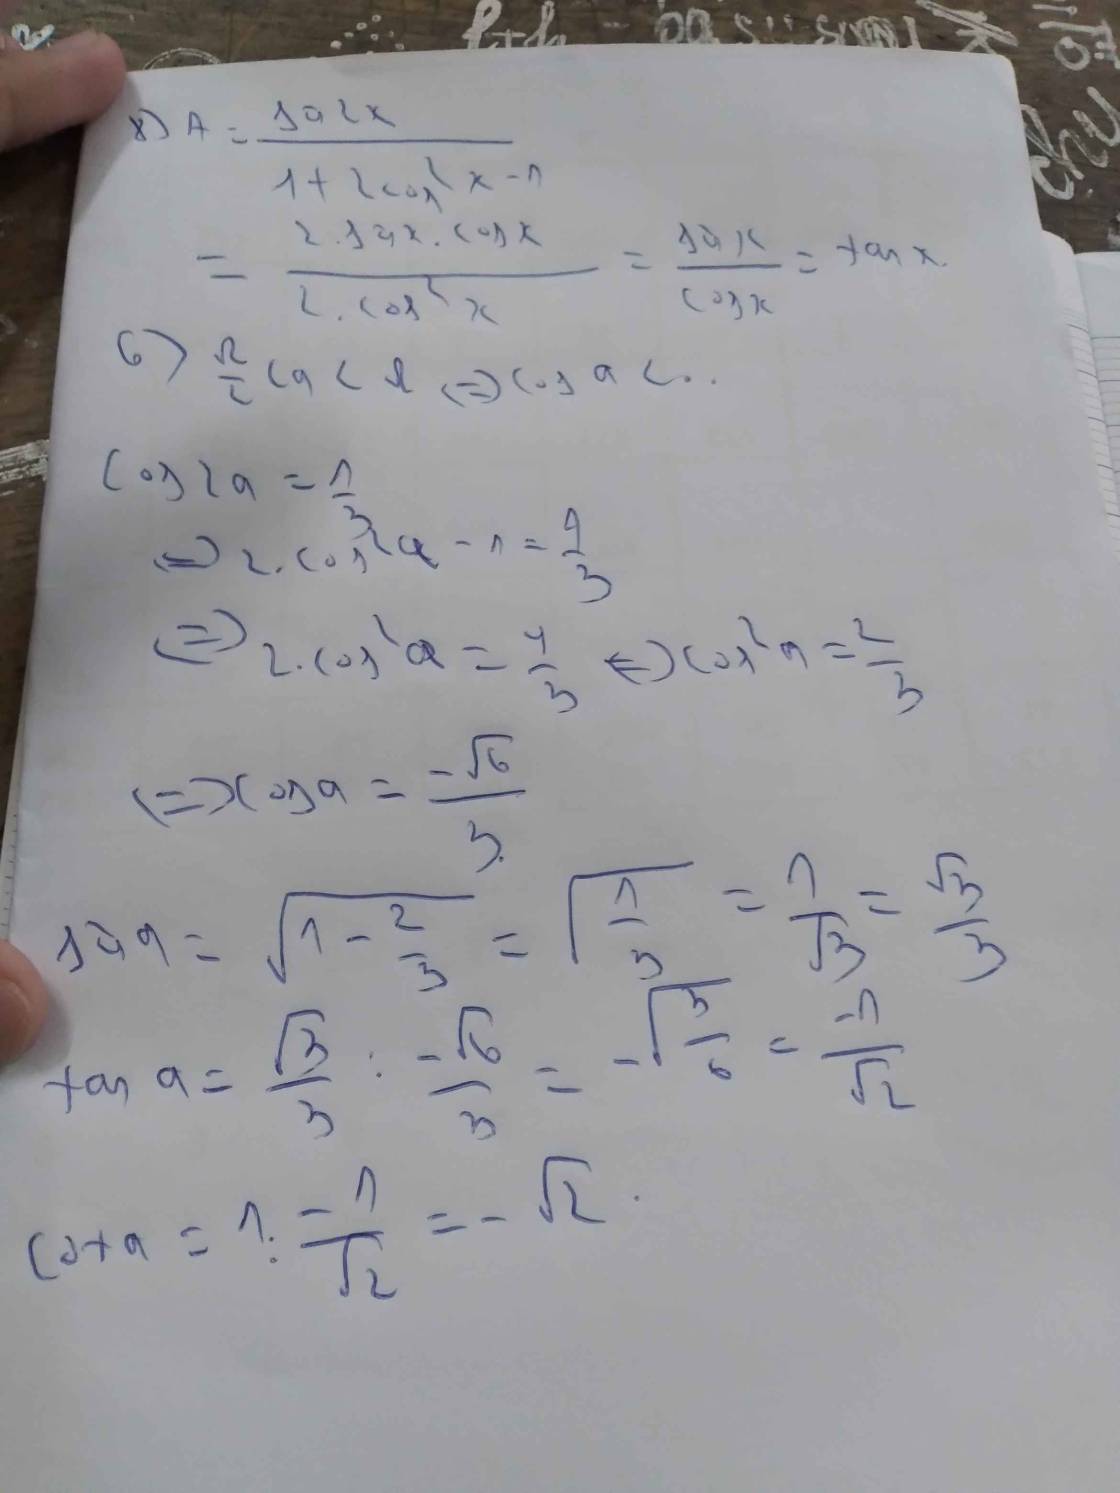 8) A = sin2x / (1 + 2cos²x - 1)
= 2.sinx.cosx / 2.cos²x = sinx / cosx = tan x.
6) π/2 < a < π <=> cos a < ..
cos2a = 1/3
<=> 2.cos²a - 1 = 1/3
<=> 2.cos²a = 4/3 <=> cos²a = 2/3
<=> cos a = -√6/3.
sin a = √(1 - 2/3) = √(1/3) = 1/√3 = √3/3
tan a = √3/3 : -√6/3 = -√(3/6) = -1/√2
cot a = 1 : -1/√2 = -√2.